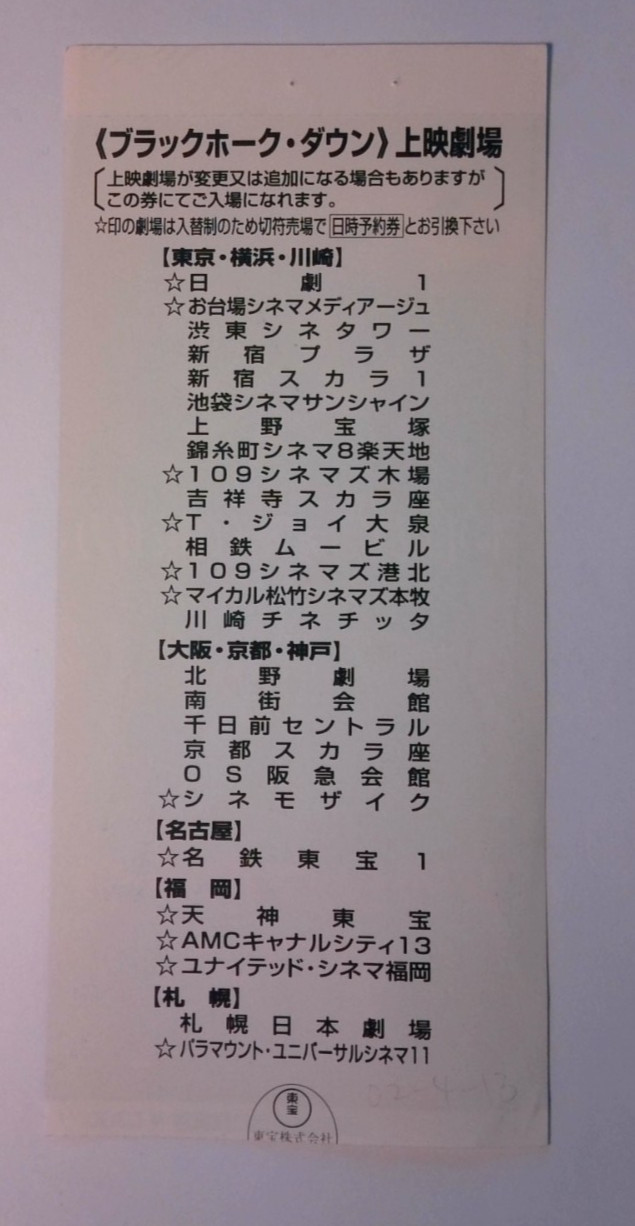 《ブラックホーク・ダウン》上映劇場
上映劇場が変更又は追加になる場合もありますが
この券にてご入場になれます。
☆印の劇場は入替制のため切符売場で日時予約券とお引換下さい
【東京・横浜・川崎】
☆日劇1
☆お台場シネマメディアージュ
渋東シネタワー
新宿プラザ
新宿スカラ1
池袋シネマサンシャイン
上野宝塚
錦糸町シネマ8楽天地
☆109シネマズ木場
吉祥寺スカラ座
☆T・ジョイ大泉
相鉄ムービル
☆109シネマズ港北
☆マイカル松竹シネマズ本牧
川崎チネチッタ
【大阪・京都・神戸】
北野劇場
南街会館
千日前セントラル
京都スカラ座
OS阪急会館
☆シネモザイク
【名古屋】
☆名鉄東宝1
【福岡】
☆天神東宝
☆AMCキャナルシティ13
☆ユナイテッド・シネマ福岡
【札幌】
札幌日本劇場
☆パラマウント・ユニバーサルシネマ11
02-4-13
東宝
東宝株式会社